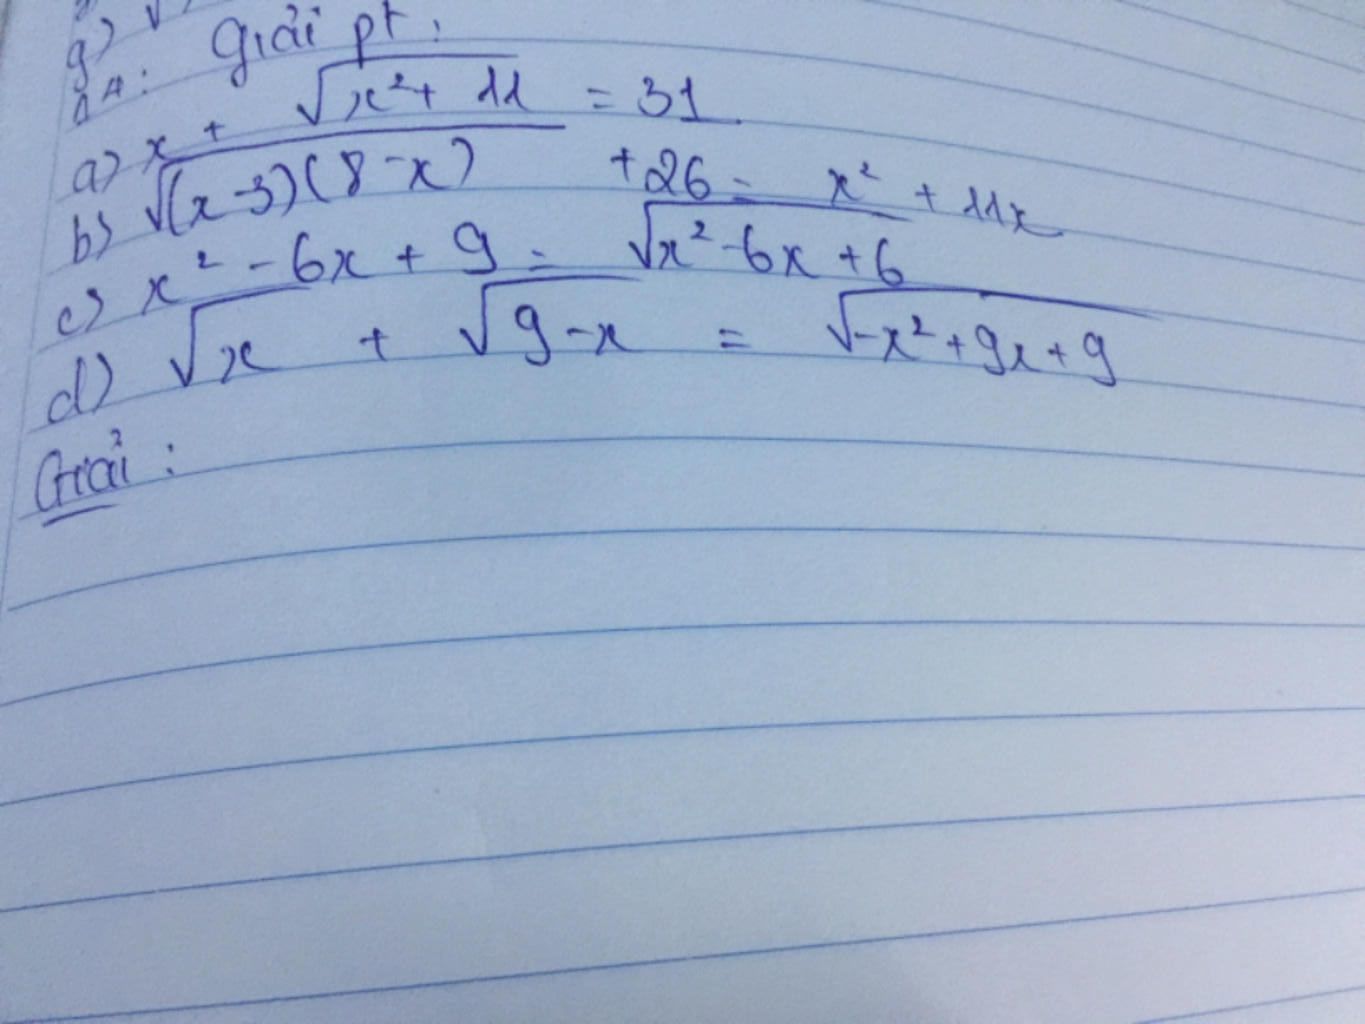 g) √
Giải pt:
a) x + √x² + 11 = 31
b) √(x-3)(8-x) + 26 = x² + 11x
c) x² - 6x + 9 = √x² - 6x + 6
d) √x + √9-x = √-x² + 9x + 9
Giải: